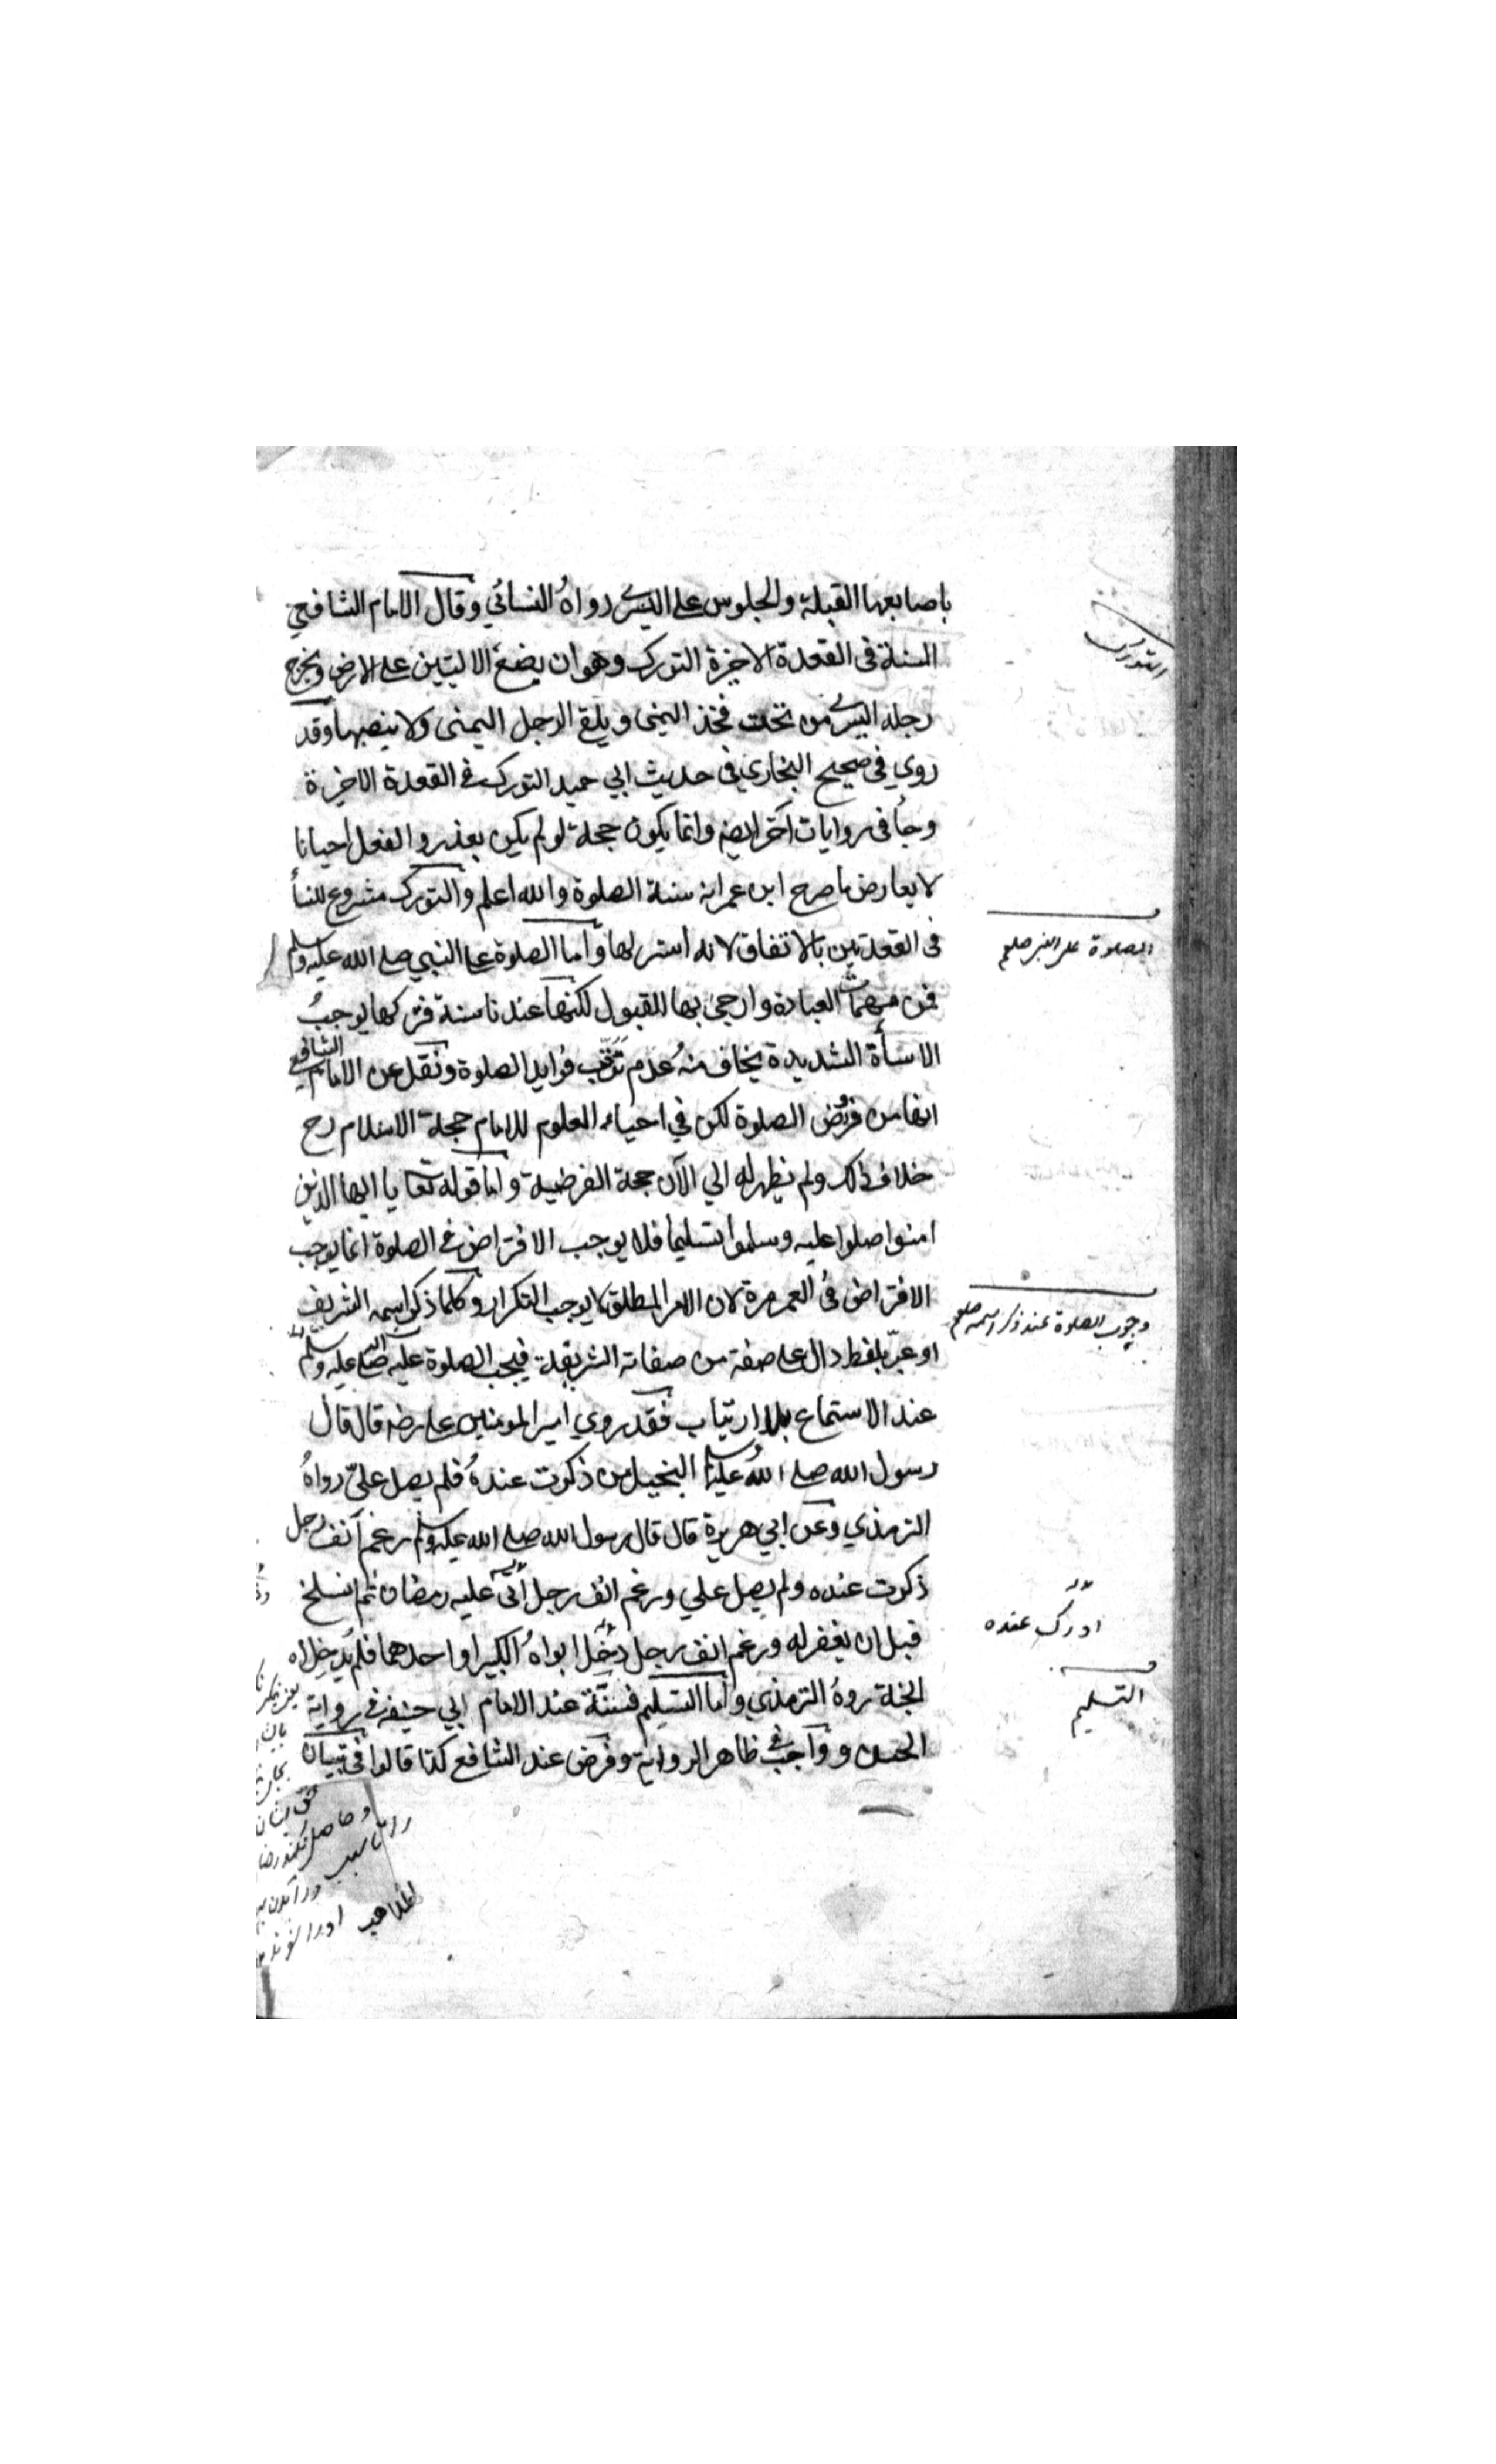 باصابعها القبلة والجلوس على اليسرى رواهُ النسائي وقال الامام الشافعي
السنة فى القعدة الاخيرة التورك وهو ان يضع الاليتين على الارض ويخرج
رجله اليسرى من تحت فخذ اليمنى ويلقى الرجل اليمنى ولا ينصبها وقد
روي فى صحيح البخاري فى حديث ابي حميد التورك فى القعدة الاخيرة
وجأ فى روايات اخر ايضه وانما يكون حجة لو لم يكن بعذر والفعل احيانا
لا يعارض ما صرح ابن عمر انه سنة الصلوة والله اعلم والتورك مشروع للنسأ
فى القعدتين بالاتفاق لانه استر لها واما الصلوة على النبي صلى الله عليه وسلم
فمن مهمات العبادة وارجى بها للقبول لكنها عندنا سنة فتركها يوجبُ
الاسأة الشديدة يخاف منهُ عدم ترتب فوايد الصلوة ونقل عن الامام الشافعي
انها من فروض الصلوة لكن في احياء العلوم للامام حجة الاسلام رح
خلاف ذلك ولم يظهر له الي الآن حجة الفرضية واما قوله تعا يا ايها الذين
امنوا صلوا عليه وسلموا تسليما فلا يوجب الافتراض فى الصلوة انما يوجب
الافتراض فى العمر مرة لان الامر المطلق لا يوجب التكرار وكلما ذكر اسمه الشريف
او عبّر بلفظ دال على صفة من صفاته الشريفة فيجب الصلوة عليه صلى الله عليه وسلم
عند الاستماع بلا ارتياب فقد روي امير المومنين على رضه قال قال
رسول الله صلى اللهُ عليه وسلم البخيل من ذكرت عندهُ فلم يصل عليّ رواهُ
الترمذي وعن ابي هريرة قال قال رسول الله صلى الله عليه وسلم رغم انف رجل
ذكرت عنده ولم يصل علي ورغم انف رجل أتى عليه رمضان ثم انسلخ
قبل ان يغفر له ورغم انف رجل دخل ابواهُ الكبير او احدهما فلم يدخلاه
الجنة روهُ الترمذي واما التسليم فسنّة عند الامام ابي حنيفه فى رواية
الحسن وواجب فى ظاهر الرواية وفرض عند الشافع كذا قالوا فى تبيان
التورك
الصلوة على النبى صلعم
وجوب الصلوة عند ذكر اسمه صلعم
ادرك عنده
التسليم